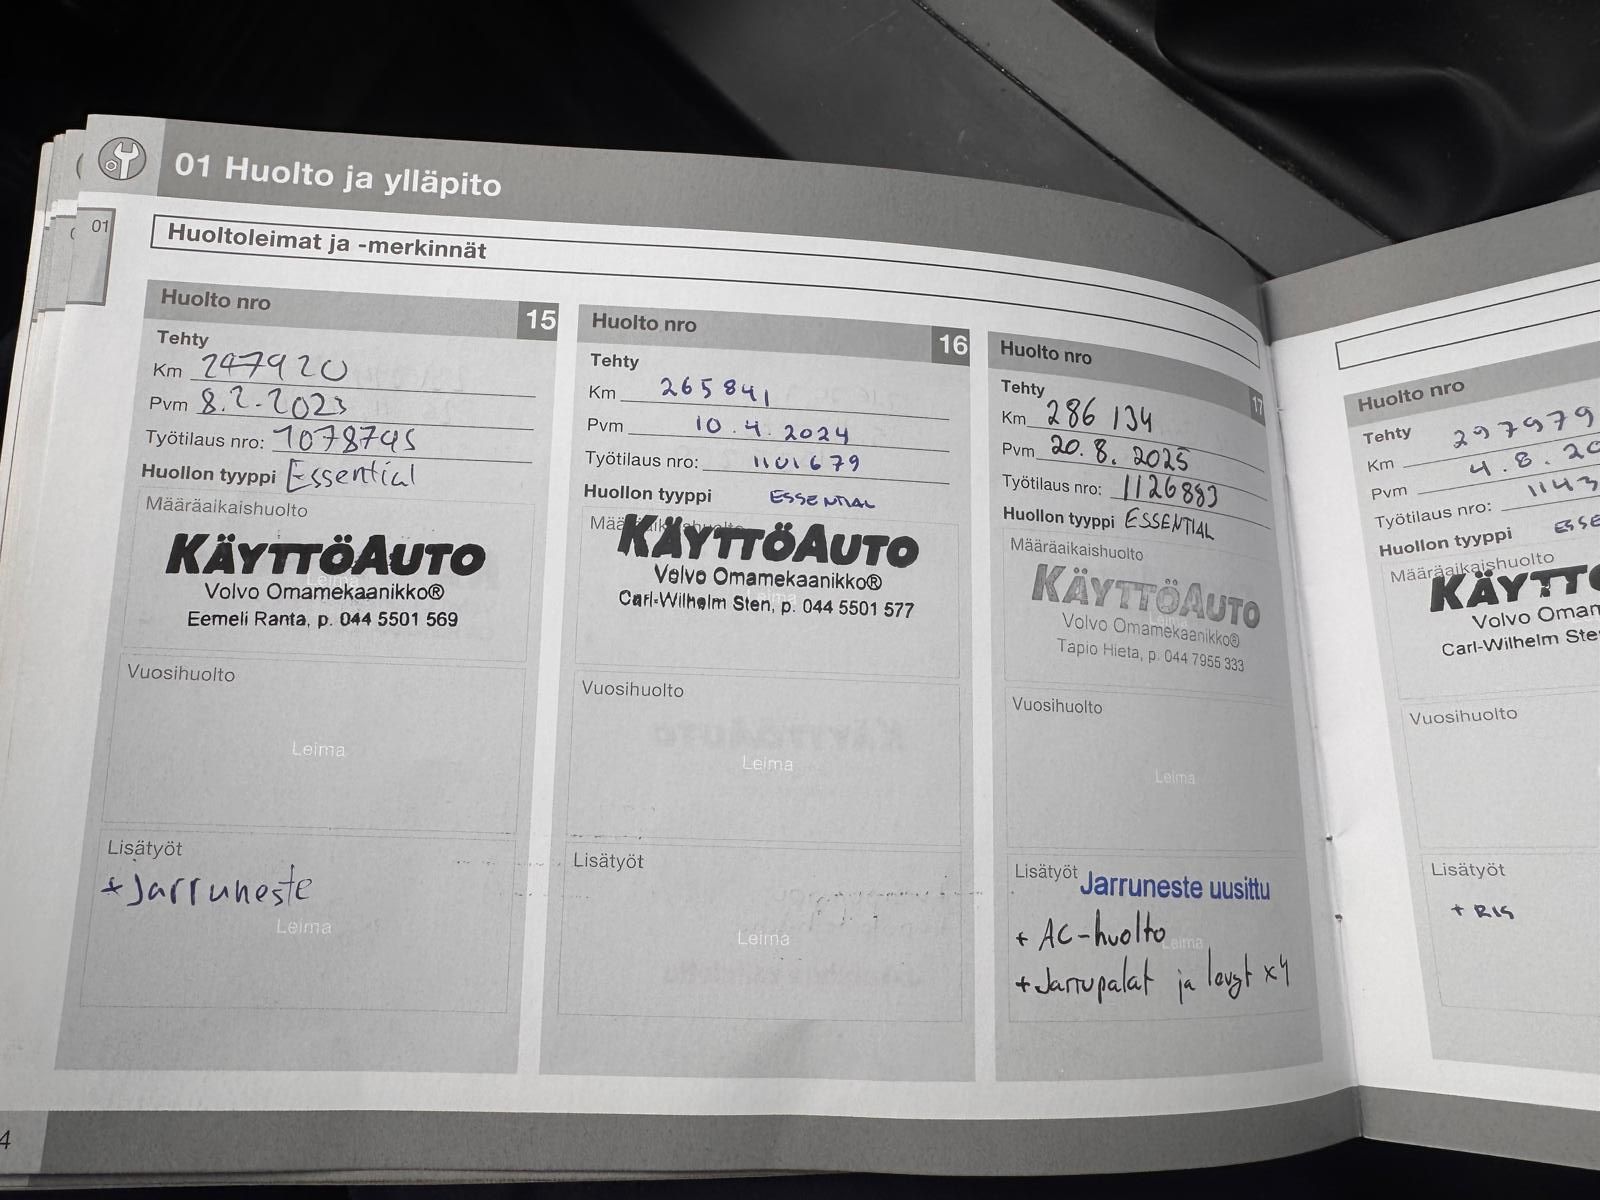 01 Huolto ja ylläpito
01
Huoltoleimat ja -merkinnät
Huolto nro 15
Tehty
Km 247920
Pvm 8.2.2023
Työtilaus nro: 1078745
Huollon tyyppi Essential
Määräaikaishuolto
KÄYTTÖAUTO
Leima
Volvo Omamekaanikko®
Eemeli Ranta, p. 044 5501 569
Vuosihuolto
Leima
Lisätyöt
+ Jarruneste
Leima
Huolto nro 16
Tehty
Km 265841
Pvm 10.4.2024
Työtilaus nro: 1101679
Huollon tyyppi ESSENTIAL
Määräaikaishuolto
KÄYTTÖAUTO
Volvo Omamekaanikko®
Leima
Carl-Wilhelm Sten, p. 044 5501 577
Vuosihuolto
Leima
Lisätyöt
Leima
Huolto nro 17
Tehty
Km 286 134
Pvm 20.8.2025
Työtilaus nro: 1126883
Huollon tyyppi ESSENTIAL
Määräaikaishuolto
KÄYTTÖAUTO
Leima
Volvo Omamekaanikko®
Tapio Hieta, p. 044 7955 333
Vuosihuolto
Leima
Lisätyöt Jarruneste uusittu
+ AC-huolto
Leima
+ Jarrupalat ja levyt x4
Huolto nro
Tehty
Km 297979
Pvm 4.8.20
Työtilaus nro: 1143
Huollon tyyppi ESSE
Määräaikaishuolto
KÄYTTÖ
Volvo Omam
Carl-Wilhelm Ste
Vuosihuolto
Lisätyöt
4